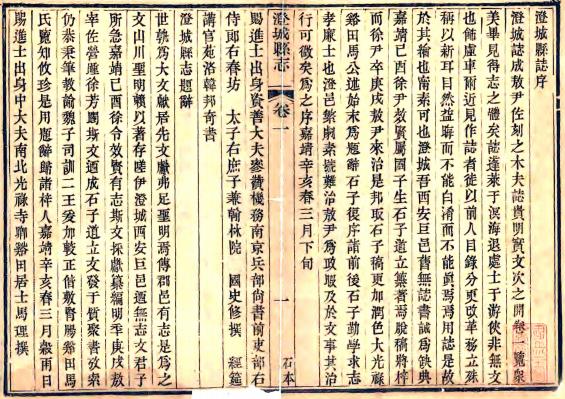 澄城縣誌序
澄城誌成敖尹佐刻之木夫誌貴明實文次之開卷一覽衆
美畢見得志之體矣誌蓬萊于溟海退處士于游俠非無文
也飾虛車爾近見作誌者徒以前人目錄分更改革務立殊
稱以新耳目然益晦而不能白淆而不能眞焉焉用誌是故
於其繪也甯素可也澄城吾西安巨邑舊無誌書誠為缺典
嘉靖已酉徐尹效賢屬國子生石子道立纂著焉脫稿將梓
而徐尹卒庚戌敖尹來治是邦取石子稿更加潤色大光祿
谿田馬公述始末為題辭石子復序諸前後石子勤學求志
孝廉士也澄邑紫劇素號難治敖尹為政暇及於文事其治
行可徵矣為之序嘉靖辛亥春三月下旬
賜進士出身資善大夫叅贊機務南京兵部尚書前吏部右
侍郎右春坊 太子右庶子兼翰林院 國史修撰 經筵
講官苑洛韓邦奇書
澄城縣志題辭
世孰為大文獻居先文獻弗足聖明焉傳郡邑有志是為之
文山川聖明賴以著存陸伊澄城西安巨邑迺無志文君子
所急嘉靖己酉徐令效賢有志斯文採獻纂編明季庚戌敖
宰佐營鏖徐芳躅斯文迺成石子道立文發于質聚書攷索
仍恭秉筆敎諭魏子司訓二王爰加較正偕敷育腸谿田馬
氏覽知攸珍是用題辭歸諸梓人嘉靖辛亥春三月穀雨日
賜進士出身中大夫南北光祿寺卿谿田居士馬理撰
澄城縣志
卷一
一
石本